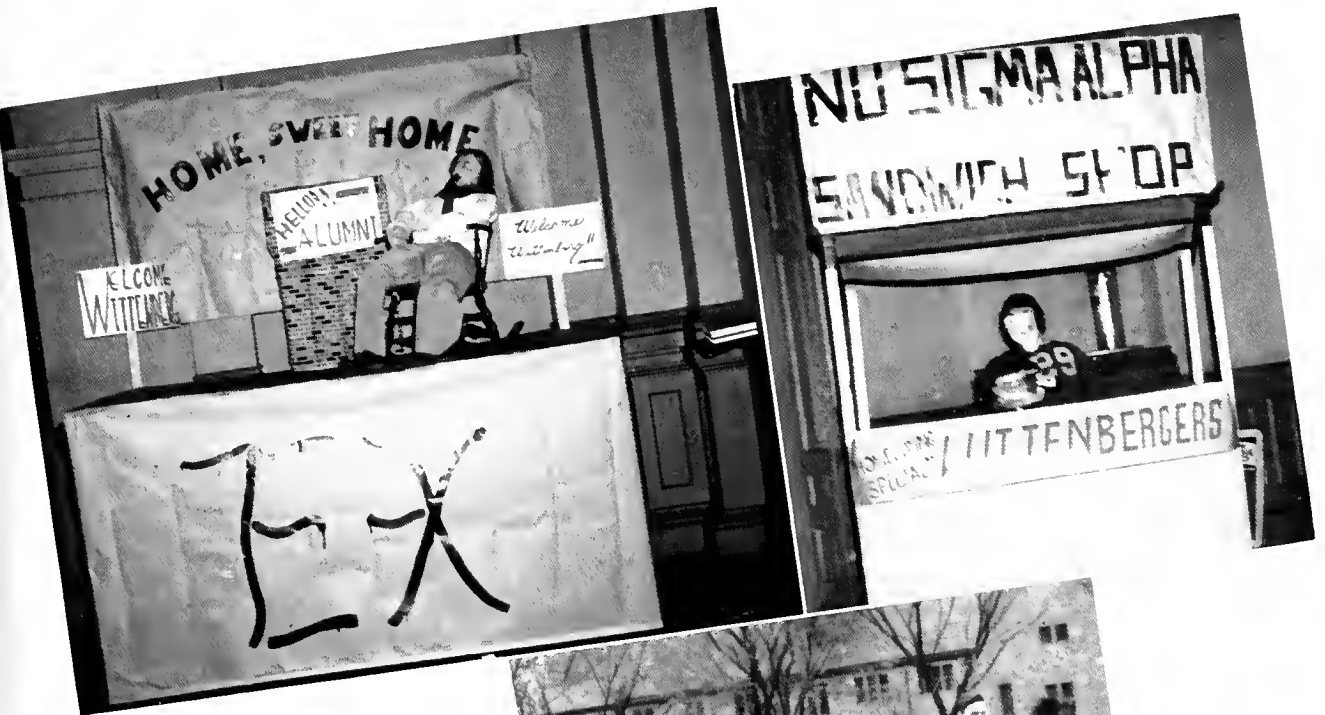 HOME, SWEET HOME
HELLO
ALUMNI
WELCOME
WITTENBERG
Welcome
Wittenberg!!
EX
NU SIGMA ALPHA
SANDWICH SHOP
WELCOME
SPECIAL
WITTENBERGERS
89